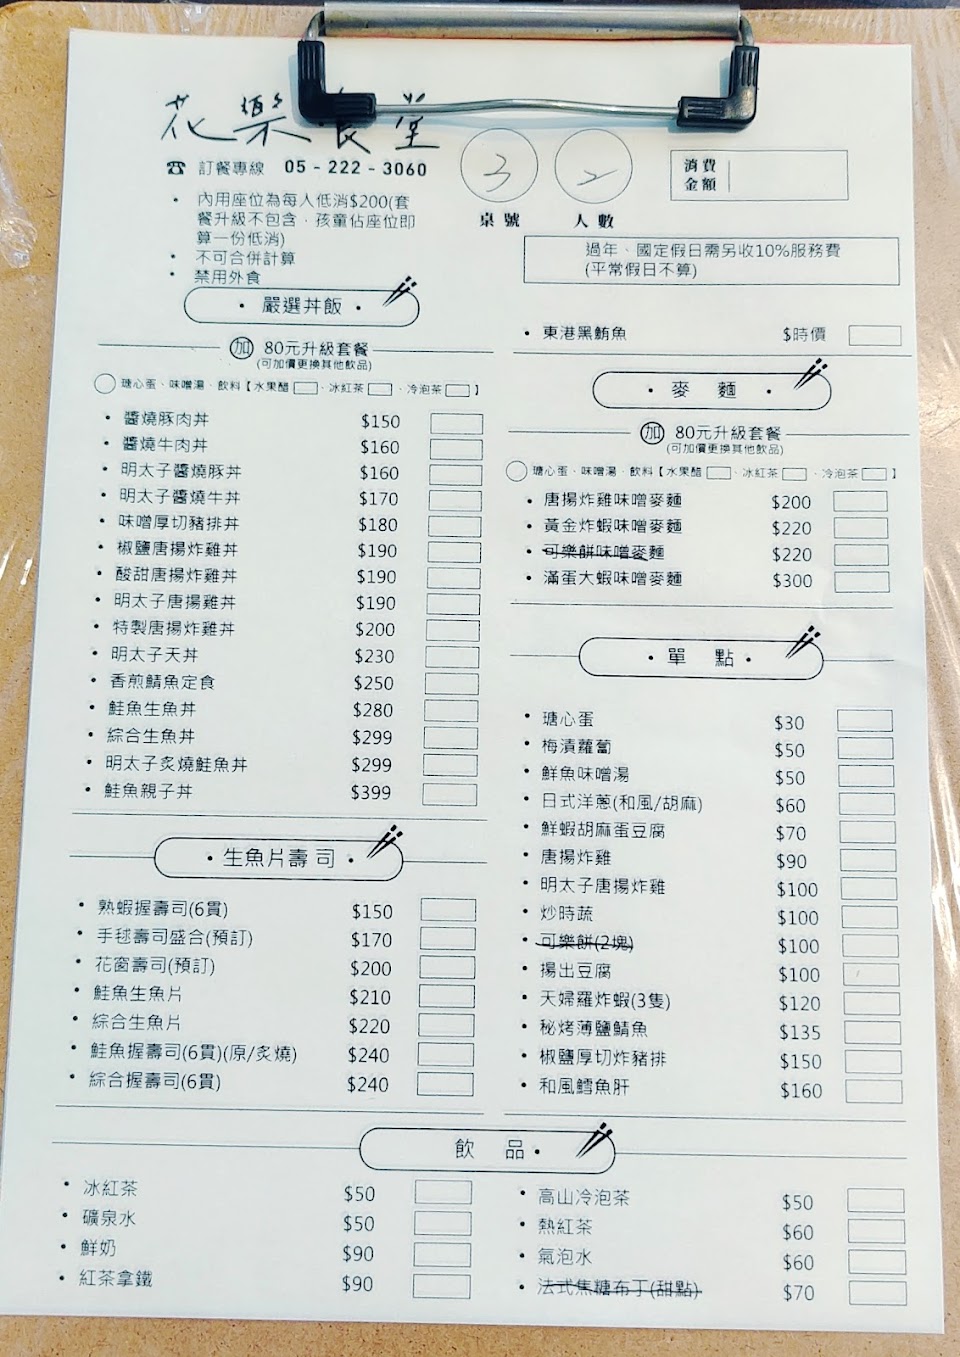 花樂食堂
☎ 訂餐專線 05-222-3060
• 內用座位為每人低消$200(套
餐升級不包含、孩童佔座位即
算一份低消)
• 不可合併計算
• 禁用外食
3
桌號
2
人數
消費
金額
過年、國定假日需另收10%服務費
(平常假日不算)
• 嚴選丼飯 •
加 80元升級套餐
(可加價更換其他飲品)
溏心蛋、味噌湯、飲料【水果醋 、冰紅茶 、冷泡茶 】
• 醬燒豚肉丼 $150
• 醬燒牛肉丼 $160
• 明太子醬燒豚丼 $160
• 明太子醬燒牛丼 $170
• 味噌厚切豬排丼 $180
• 椒鹽唐揚炸雞丼 $190
• 酸甜唐揚炸雞丼 $190
• 明太子唐揚雞丼 $190
• 特製唐揚炸雞丼 $200
• 明太子天丼 $230
• 香煎鯖魚定食 $250
• 鮭魚生魚丼 $280
• 綜合生魚丼 $299
• 明太子炙燒鮭魚丼 $299
• 鮭魚親子丼 $399
• 生魚片壽司 •
• 熟蝦握壽司(6貫) $150
• 手毬壽司盛合(預訂) $170
• 花窗壽司(預訂) $200
• 鮭魚生魚片 $210
• 綜合生魚片 $220
• 鮭魚握壽司(6貫)(原/炙燒) $240
• 綜合握壽司(6貫) $240
• 東港黑鮪魚 $時價
• 麥麵 •
加 80元升級套餐
(可加價更換其他飲品)
溏心蛋、味噌湯、飲料【水果醋 、冰紅茶 、冷泡茶 】
• 唐揚炸雞味噌麥麵 $200
• 黃金炸蝦味噌麥麵 $220
• 可樂餅味噌麥麵 $220
• 滿蛋大蝦味噌麥麵 $300
• 單點 •
• 溏心蛋 $30
• 梅漬蘿蔔 $50
• 鮮魚味噌湯 $50
• 日式洋蔥(和風/胡麻) $60
• 鮮蝦胡麻蛋豆腐 $70
• 唐揚炸雞 $90
• 明太子唐揚炸雞 $100
• 炒時蔬 $100
• 可樂餅(2塊) $100
• 揚出豆腐 $100
• 天婦羅炸蝦(3隻) $120
• 秘烤薄鹽鯖魚 $135
• 椒鹽厚切炸豬排 $150
• 和風鱈魚肝 $160
飲品 •
• 冰紅茶 $50
• 礦泉水 $50
• 鮮奶 $90
• 紅茶拿鐵 $90
• 高山冷泡茶 $50
• 熱紅茶 $60
• 氣泡水 $60
• 法式焦糖布丁(甜點) $70